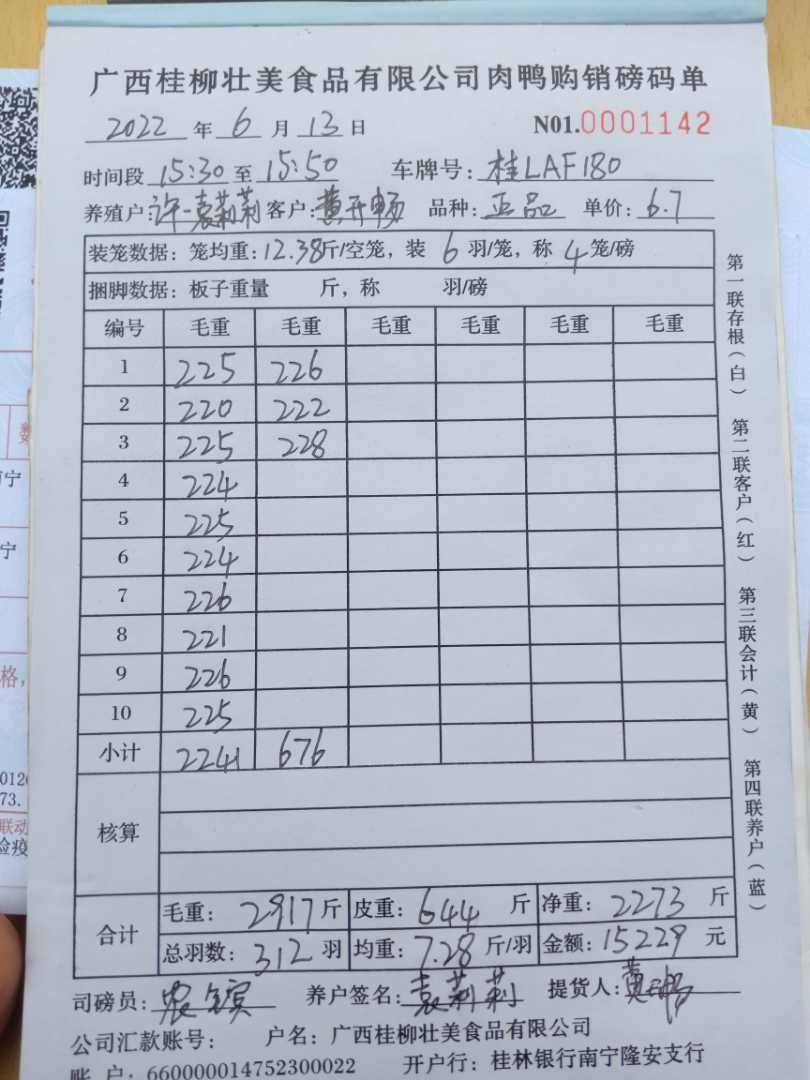 广西桂柳壮美食品有限公司肉鸭购销磅码单
2022 年 6 月 13 日 N01.0001142
时间段 15:30 至 15:50 车牌号: 桂LAF180
养殖户: 许-袁莉莉 客户: 黄开畅 品种: 正品 单价: 6.7
装笼数据: 笼均重: 12.38斤/空笼, 装 6 羽/笼, 称 4 笼/磅
捆脚数据: 板子重量 斤, 称 羽/磅
编号 毛重 毛重 毛重 毛重 毛重 毛重
1 225 226
2 220 222
3 225 228
4 224
5 225
6 224
7 226
8 221
9 226
10 225
小计 2241 676
核算
合计 毛重: 2917 斤 皮重: 644 斤 净重: 2273 斤
总羽数: 312 羽 均重: 7.28 斤/羽 金额: 15229 元
司磅员: 养户签名: 袁莉莉 提货人:
公司汇款账号: 户名: 广西桂柳壮美食品有限公司
账 户: 660000014752300022 开户行: 桂林银行南宁隆安支行
第一联存根(白) 第二联客户(红) 第三联会计(黄) 第四联养户(蓝)